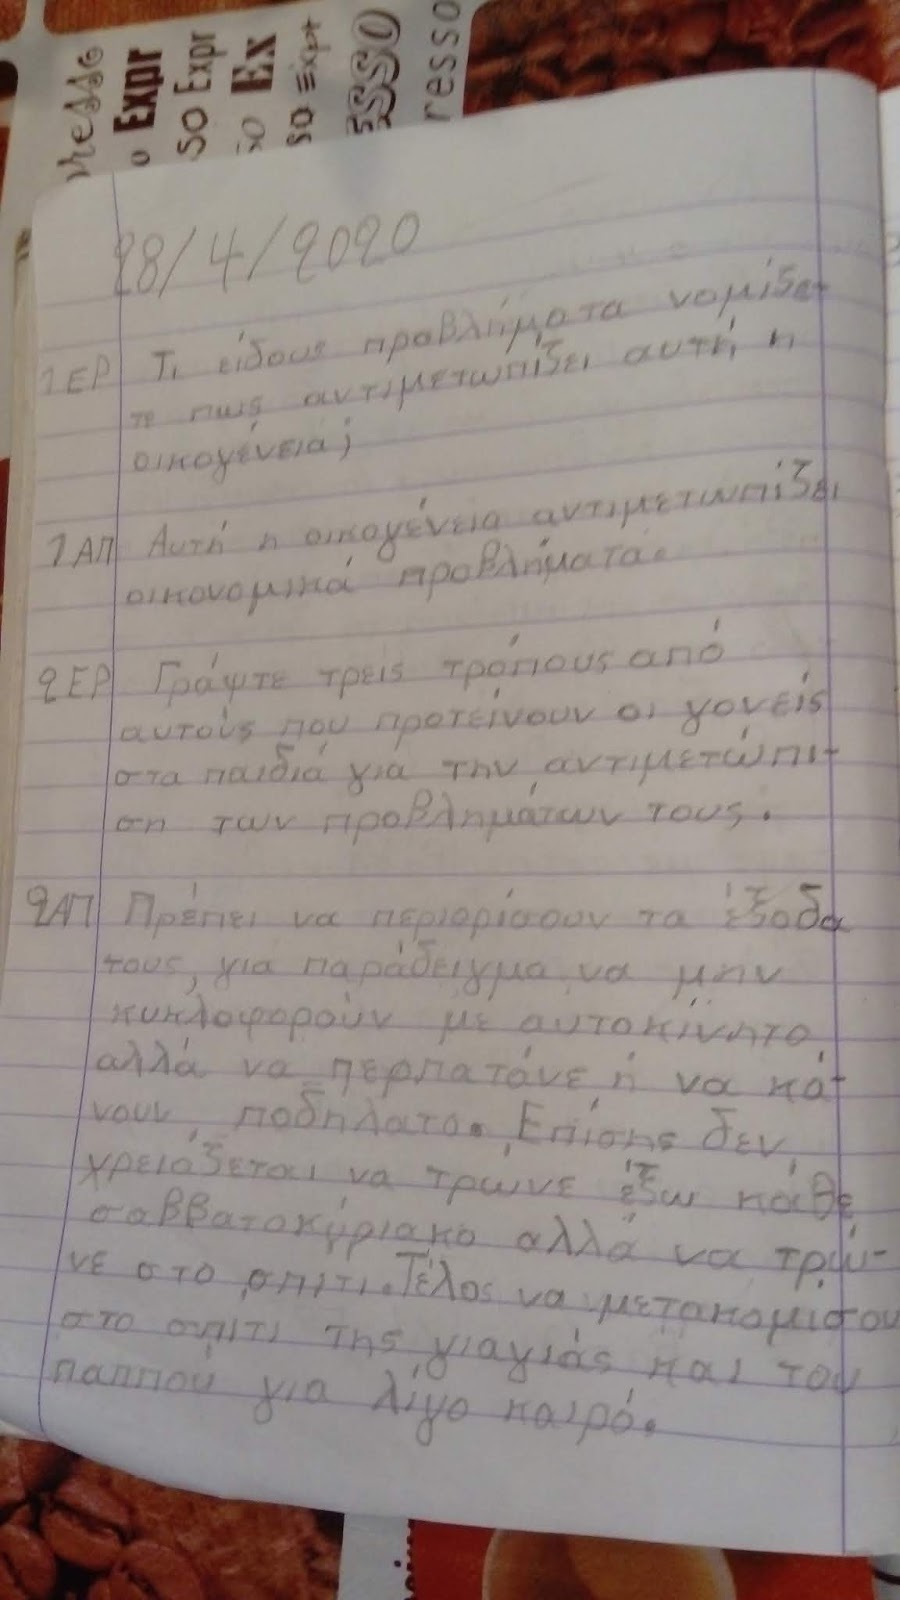 resso
o Expr
so Expr
so Ex
so Expr
esso
resso
28/4/2020
1ΕΡ Τι είδους προβλήματα νομίζε-
τε πως αντιμετωπίζει αυτή η
οικογένεια;
1ΑΠ Αυτή η οικογένεια αντιμετωπίζει
οικονομικά προβλήματα.
2ΕΡ Γράψτε τρεις τρόπους από
αυτούς που προτείνουν οι γονείς
στα παιδιά για την αντιμετώπι-
ση των προβλημάτων τους.
2ΑΠ Πρέπει να περιορίσουν τα έξοδα
τους, για παράδειγμα να μην
κυκλοφορούν με αυτοκίνητο
αλλά να περπατάνε ή να κά-
νουν ποδήλατο. Επίσης δεν
χρειάζεται να τρώνε έξω κάθε
σαββατοκύριακο αλλά να τρώ-
νε στο σπίτι. Τέλος να μετακομίσου
στο σπίτι της γιαγιάς και του
παππού για λίγο καιρό.